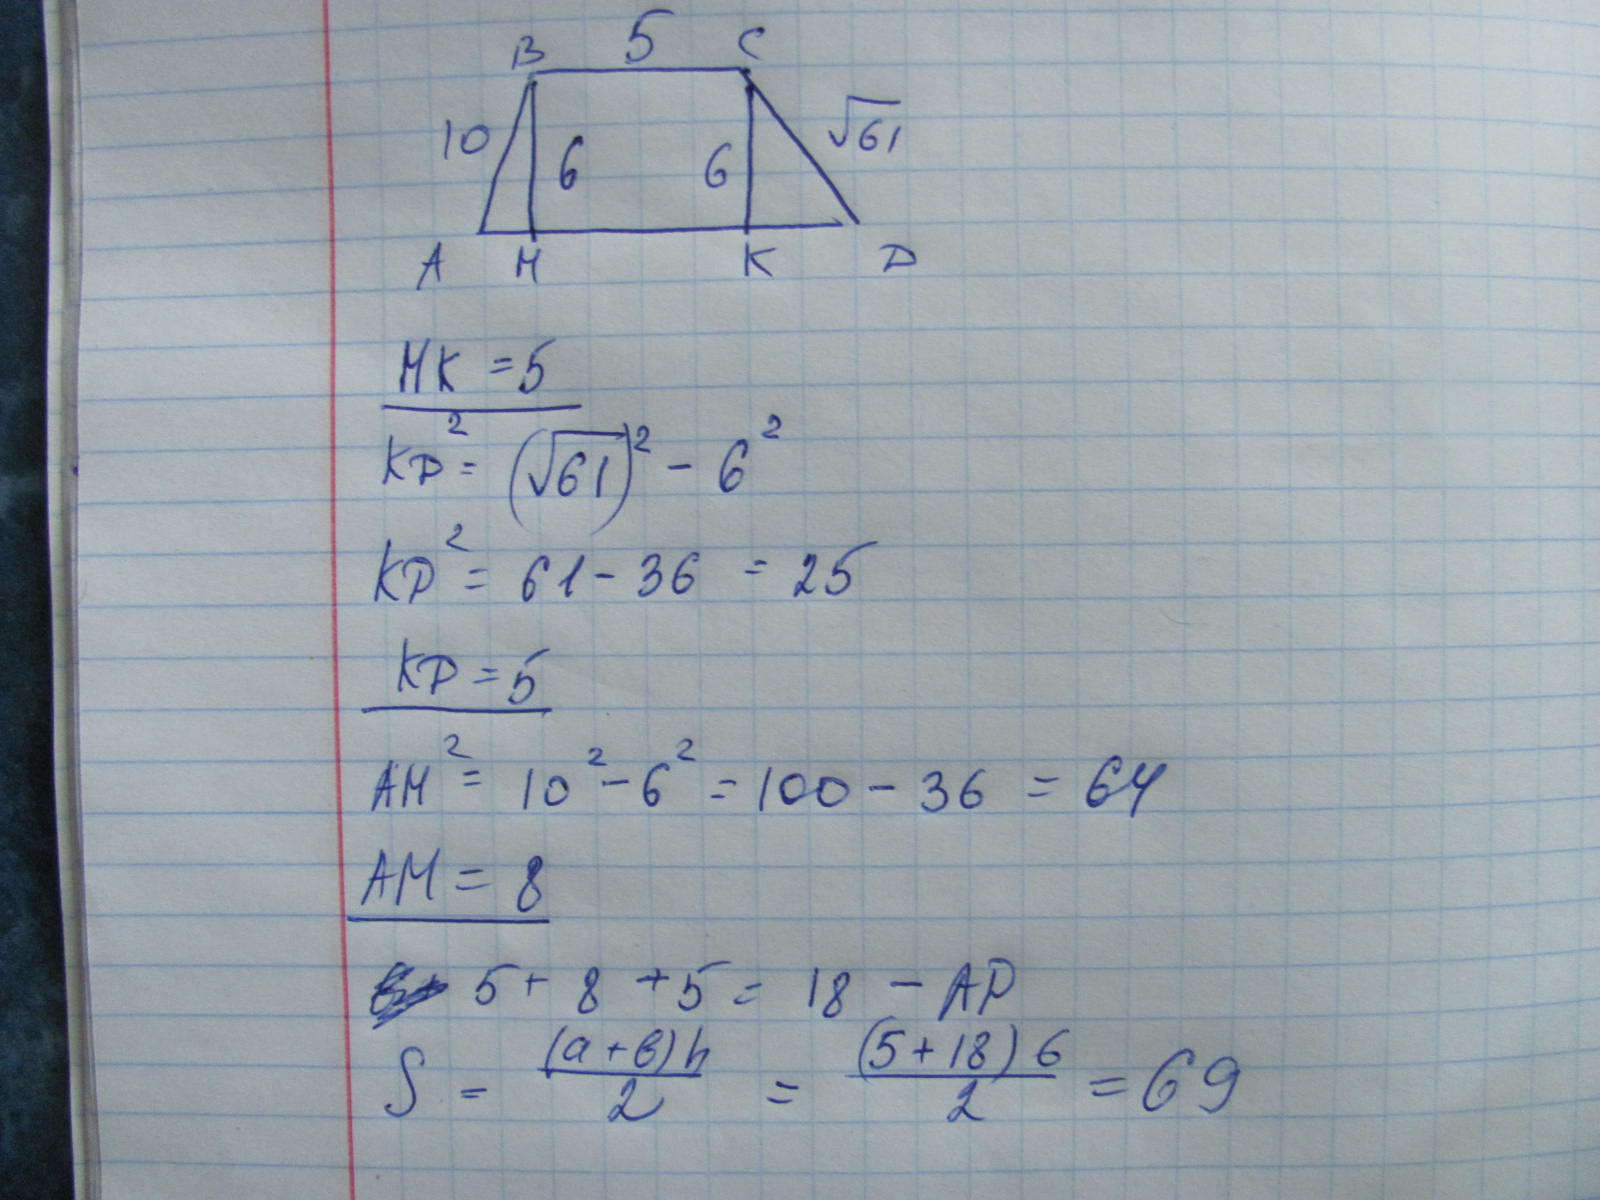 B 5 C
10 6 6 √61
A M K D
MK = 5
KD² = (√61)² - 6²
KD² = 61 - 36 = 25
KD = 5
AM² = 10² - 6² = 100 - 36 = 64
AM = 8
5 + 8 + 5 = 18 - AD
S = (a + b) h / 2 = (5 + 18) 6 / 2 = 69